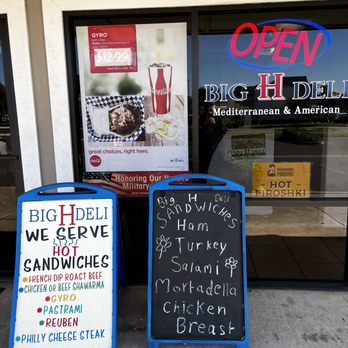 GYRO
$12.99
Coca-Cola
great choices, right here.
Honoring Our
Military
OPEN
BIG H DELI
Mediterranean & American
HOT
PIROSHKI
BIG H DELI
WE SERVE
HOT
SANDWICHES
FRENCH DIP ROAST BEEF
CHICKEN OR BEEF SHAWARMA
GYRO
PASTRAMI
REUBEN
PHILLY CHEESE STEAK
Big H Deli
SANDWICHES
Ham
Turkey
Salami
Mortadella
Chicken
Breast